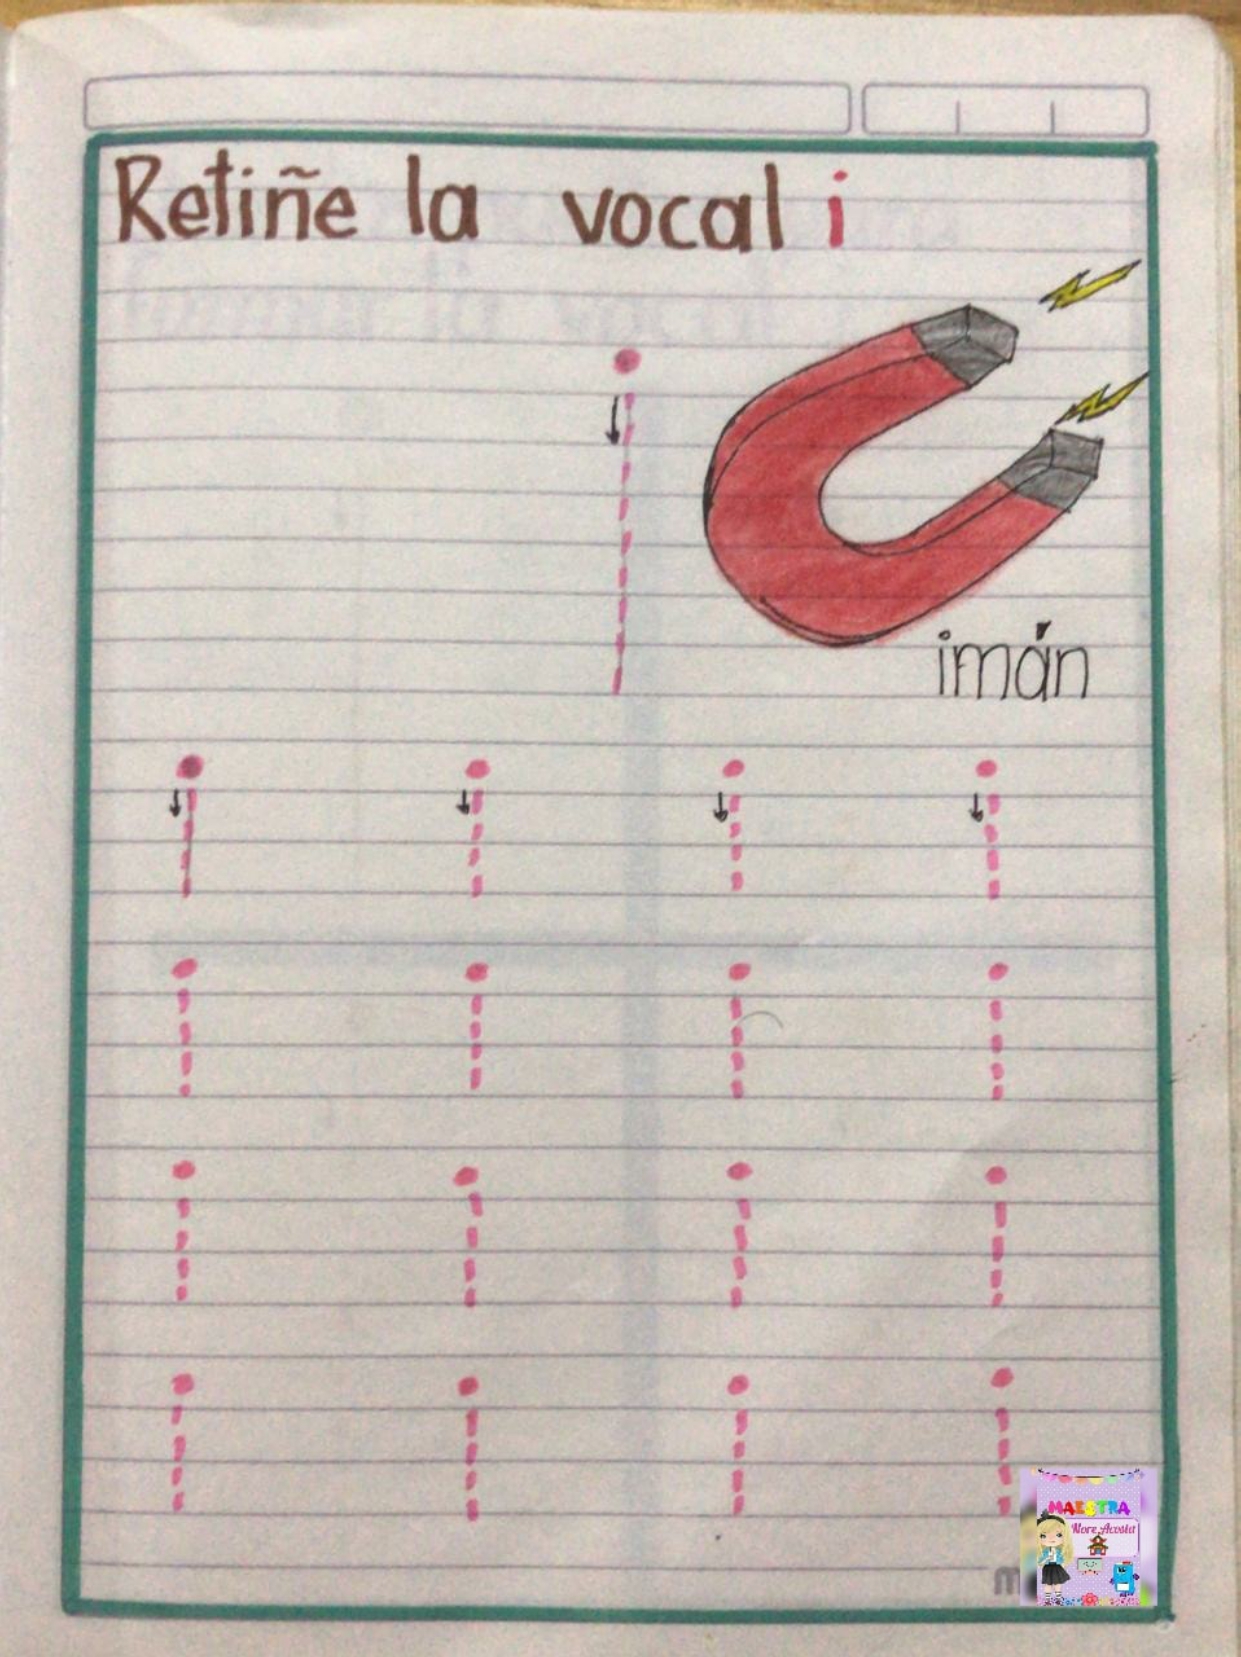 Retiñe la vocal i
i
imán
i i i i
i i i i
i i i i
i i i i
MAESTRA
Nore Acosta